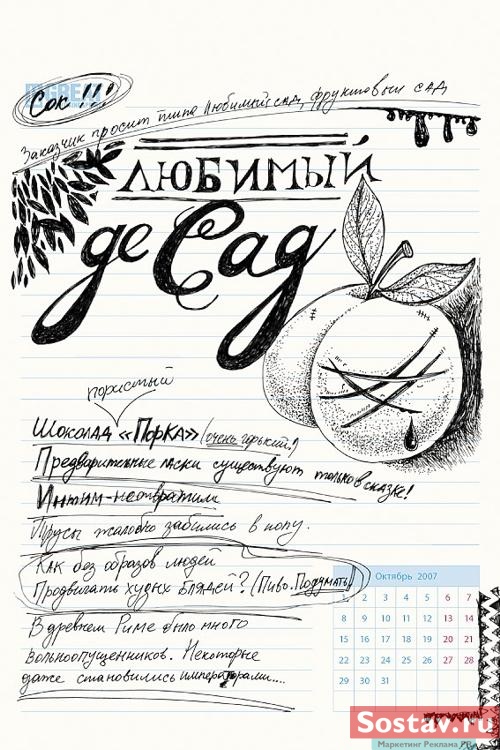 Сок !!!
Заказчик просит типа Любимый сад, фруктовый сад
ЛЮБИМЫЙ
де Сад
пористый
Шоколад «Порка» (очень горький!)
Предварительные ласки существуют только в сказке!
Интим-неотвратим
Трусы жалобно забились в попу.
Как без образов людей
Продвигать худых блядей? (Пиво. Подумать)
В древнем Риме было много
вольноопущенников. Некоторые
даже становились императорами....
Октябрь 2007
1 2 3 4 5 6 7
8 9 10 11 12 13 14
15 16 17 18 19 20 21
22 23 24 25 26 27 28
29 30 31
Sostav.ru
Маркетинг Реклама PR